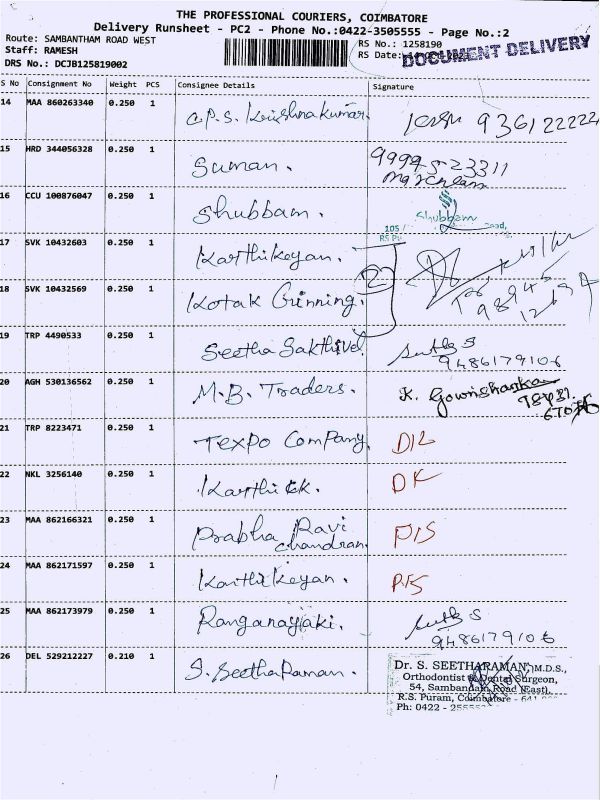 THE PROFESSIONAL COURIERS, COIMBATORE
Delivery Runsheet - PC2 - Phone No.:0422-3505555 - Page No.:2
Route: SAMBANTHAM ROAD WEST
RS No.: 1258190
Staff: RAMESH
RS Date:
DOCUMENT DELIVERY
DRS No.: DCJB125819002
S No Consignment No Weight PCS Consignee Details Signature
14 MAA 860263340 0.250 1 a.p.s. Krishnakumar. 9361222224
15 HRD 344056328 0.250 1 Suman.
16 CCU 100876047 0.250 1 Shubbam. Shubbam
105 /
17 SVK 10432603 0.250 1 Karthikeyan.
2
18 SVK 10432569 0.250 1 Kotak Grinning.
19 TRP 4490533 0.250 1 Seetha Sakthivel
9486179106
20 AGH 530136562 0.250 1 M.B. Traders. K. Gowrishankar
21 TRP 8223471 0.250 1 Texpo Company. D12
22 NKL 3256140 0.250 1 Karthick. DK
23 MAA 862166321 0.250 1 Prabha Ravi chandran. P15
24 MAA 862171597 0.250 1 Karthikeyan. P15
25 MAA 862173979 0.250 1 Ranganayaki.
9486179106
26 DEL 529212227 0.210 1 S. SeethaRaman.
Dr. S. SEETHARAMAN, M.D.S.,
Orthodontist & Dental Surgeon,
54, Sambandam Road (East),
R.S. Puram, Coimbatore - 641
Ph: 0422 -